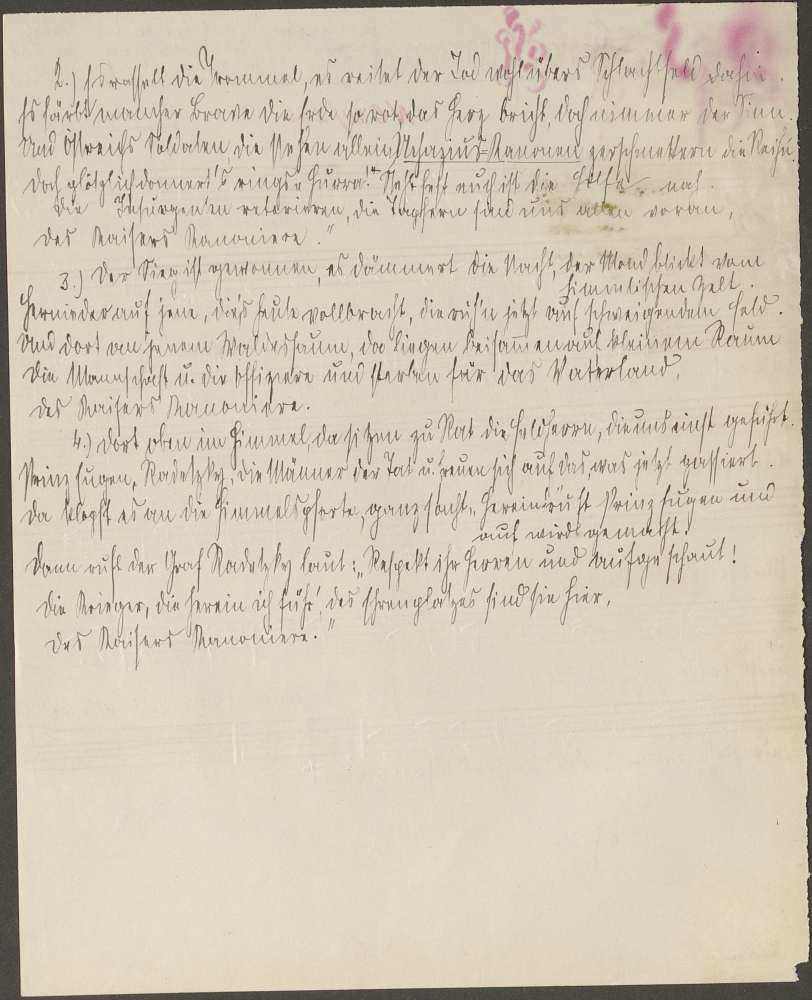 2.) Es rasselt die Trommel, es reitet der Tod wohl übers Schlachtfeld dahin.
Es färbt mancher Brave die Erde so rot, das Herz bricht, doch nimmer der Sinn.
Und Östreichs Soldaten, die stehen allein, Uchazius-Kanonen zerschmettern die Reih'n.
Doch plötzlich donnert's rings „Hurra!" Steht fest euch ist die Hilfe nah.
Die Insurgenten retirieren, die Tapfern sind uns allen voran,
des Kaisers Kanoniere."
3.) Der Sieg ist gewonnen, es dämmert die Nacht, der Mond blickt vom
himmlischen Zelt.
Hernieder auf jene, die's heute vollbracht, die ruh'n jetzt auf schweigendem Feld.
Und dort an jenem Waldessaum, da liegen beisamen auf kleinem Raum
die Mannschaft u. die Offiziere und sterben für das Vaterland,
des Kaisers Kanoniere.
4.) Dort oben im Himmel, da sitzen zu Rat die Feldherrn, die uns einst geführt.
Prinz Eugen, Radetzky, die Männer der Tat u. freuen sich auf das, was jetzt passiert.
Da klopft es an die Himmelspforte, ganz sacht, „Herein" ruft Prinz Eugen und
auf wird gemacht.
Dann ruft der Graf Radetzky laut: „Respekt ihr Herren und aufgeschaut!
Die Krieger, die herein ich führ', des Ehrenplatzes sind sie hier,
des Kaisers Kanoniere."